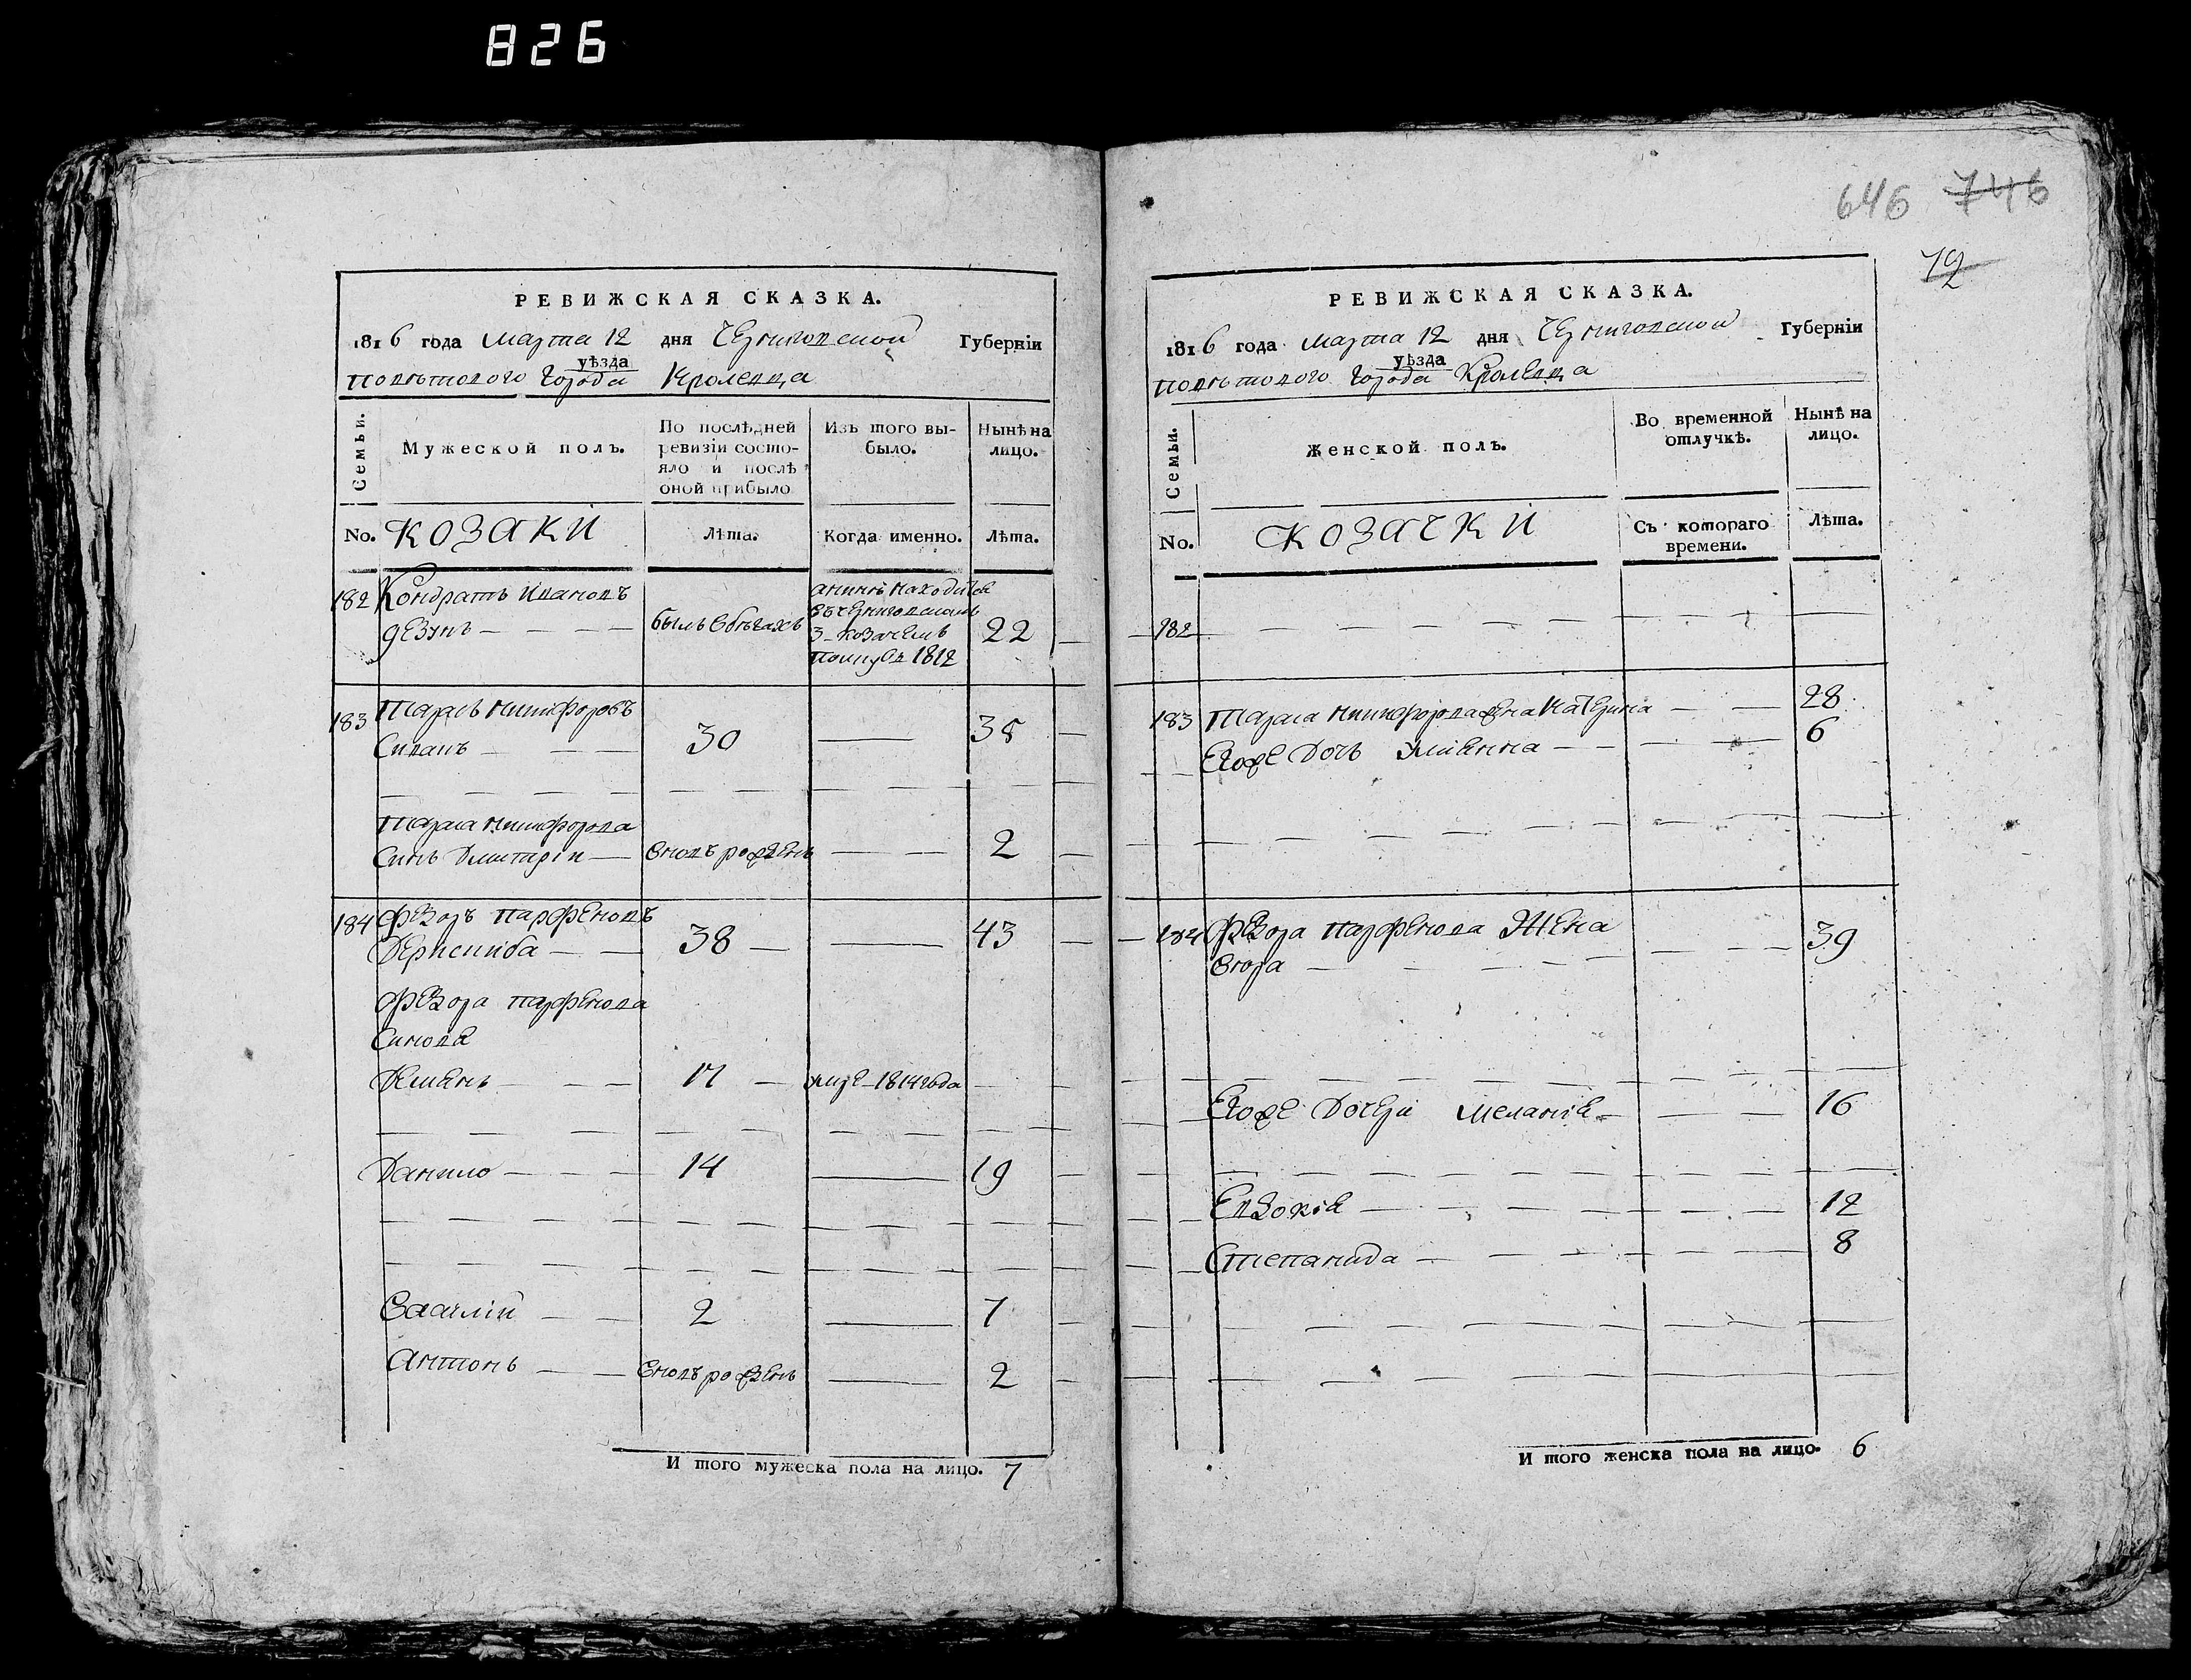 826
646 746
72
РЕВИЖСКАЯ СКАЗКА.
1816 года Марта 12 дня Черниговской Губерніи
уѣзда
Поветового Города Кролевца
Семьи.
Мужеской полъ.
По послѣдней ревизіи состо-
яло и послѣ оной прибыло
Изъ того вы-
было.
Нынѣ на лицо.
No. КОЗАКИ
Лѣта.
Когда именно.
Лѣта.
182 Кондратъ Ивановъ
былъ в бегахъ
а нинѣ находится
въ Черниговскомъ
3 козачемъ
полку с 1812
22
183 Тарасъ Никифоровъ
30
35
Тараса Никифорова
Синъ Дмитрій
вновъ рожденъ
2
184 Федоръ Парфеновъ
38
43
Федора Парфенова
Синовя
17
умре 1814 года
Данило
14
19
Василій
2
7
Антонъ
вновъ рожденъ
2
И того мужеска пола на лицо. 7
РЕВИЖСКАЯ СКАЗКА.
1816 года Марта 12 дня Черниговской Губерніи
уѣзда
Поветового Города Кролевца
Семьи.
Женской полъ.
Во временной отлучкѣ.
Нынѣ на лицо.
No. КОЗАЧКИ
Съ котораго времени.
Лѣта.
182
183 Тараса Никифорова жена Катерина
28
Егоже Дочь Улиянна
6
184 Федора Парфенова Жена
39
Егоже Дочери Меланія
16
Евдокія
12
Степанида
8
И того женска пола на лицо. 6